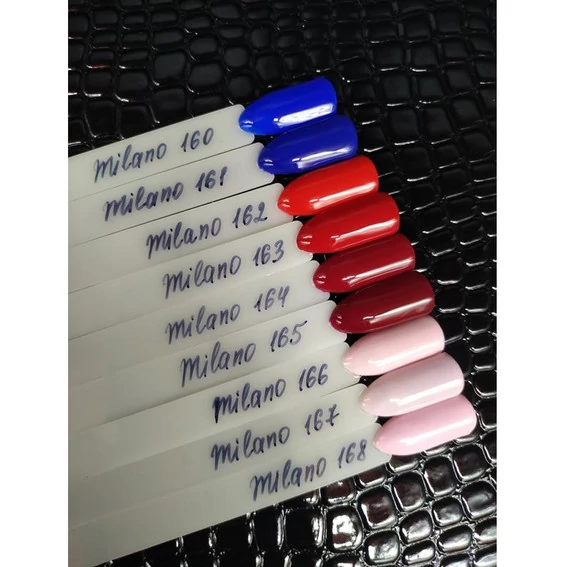 Milano 160
Milano 161
Milano 162
Milano 163
Milano 164
Milano 165
Milano 166
Milano 167
Milano 168